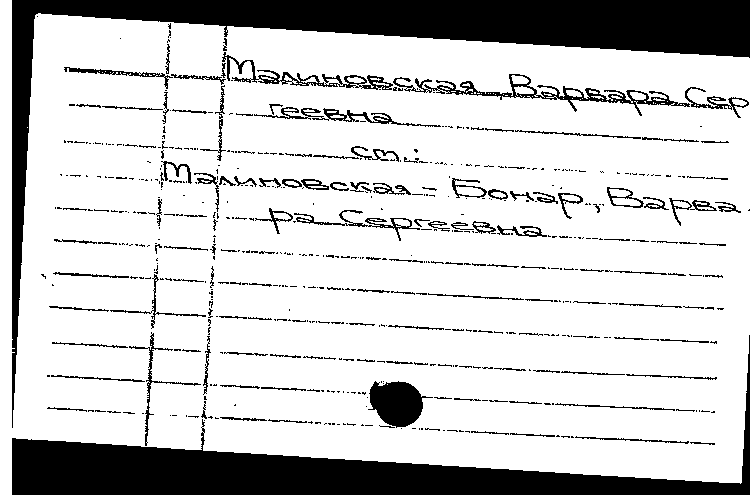 Малиновская, Варвара Сер
геевна
см.:
Малиновская - Бонар, Варва-
ра Сергеевна